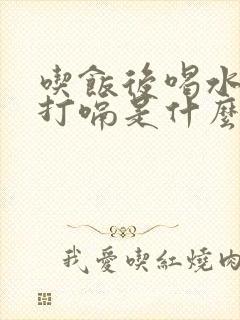 喫飯後喝水
打嗝是什麼
我愛喫紅燒肉